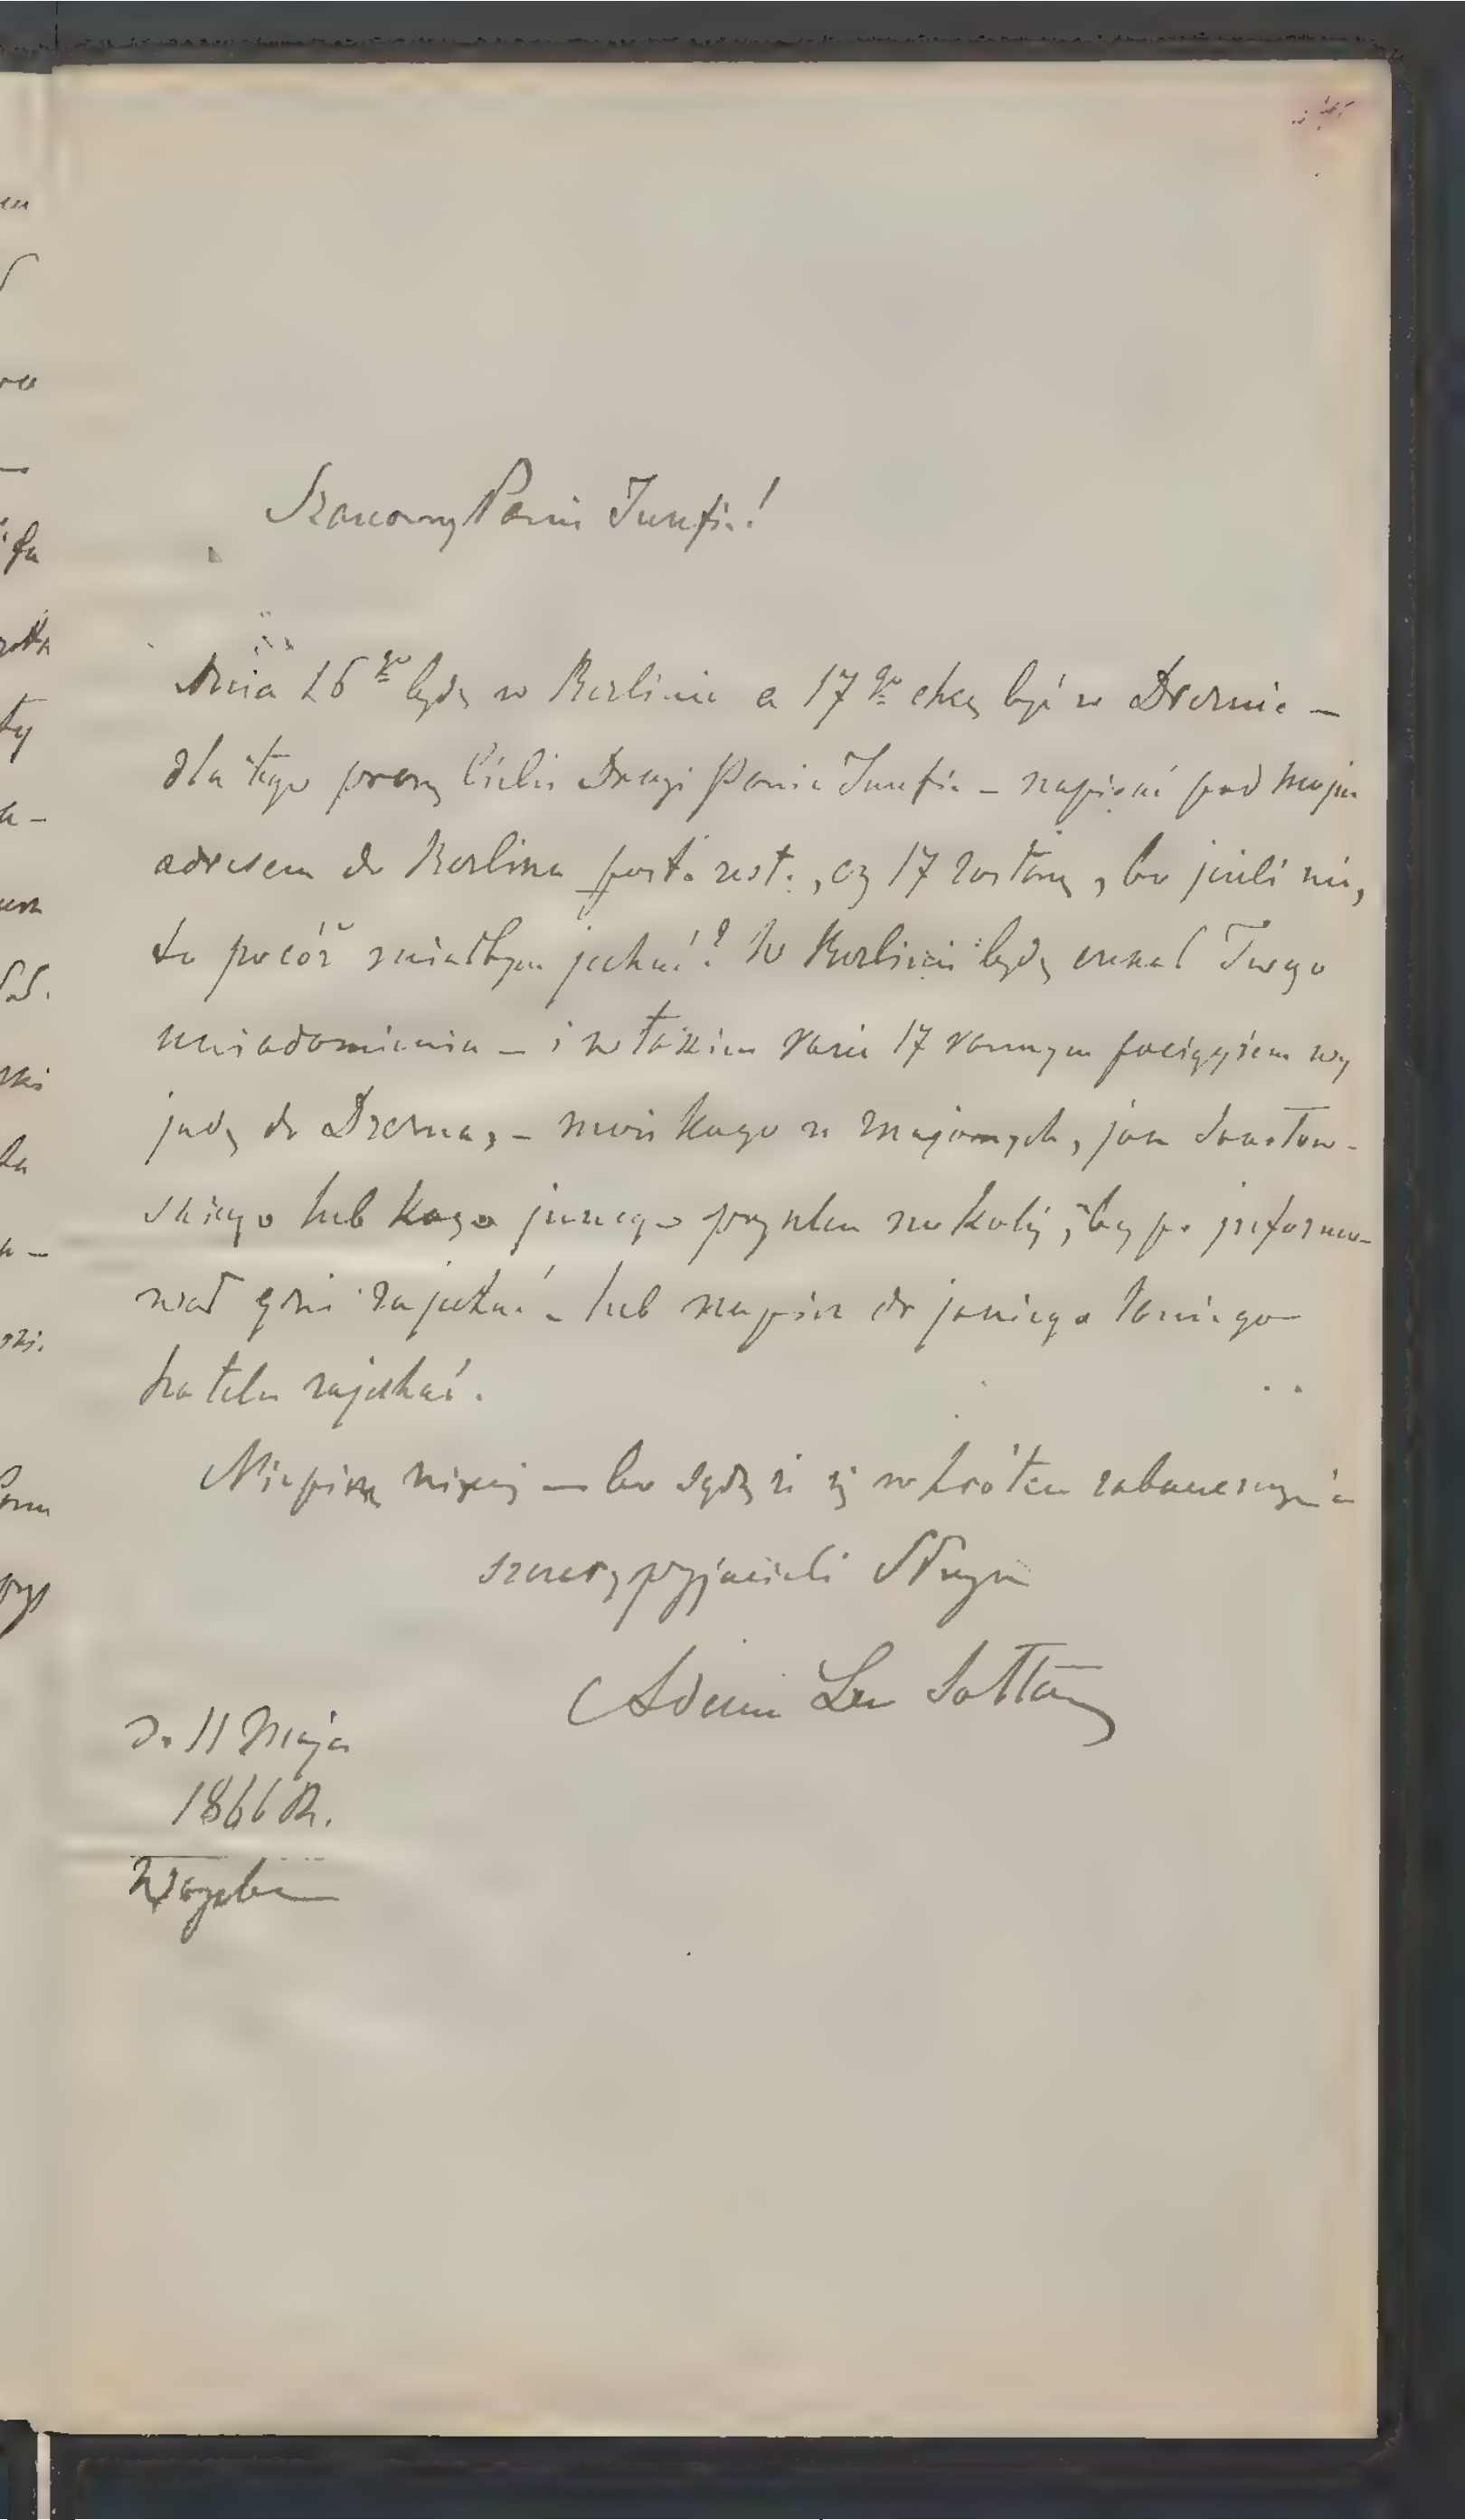 Szanowny Panie Józefie!
Dnia 16go będę w Berlinie a 17go chcę być w Dreznie –
dla tego proszę Ciebie Drogi Panie Józefie – napisać pod moim
adresem do Berlina post. rest., czy 17 zostanę, bo jeżeli nie,
to pocóż miałbym jechać? W Berlinie będę czekał Twego
uwiadomienia – i w takim razie 17 rannym pociągiem wy
jadę do Drezna, – może kogo ze znajomych, jak
skiego lub kogo innego przyszlesz na kolej, żeby po informo-
wał gdzie zajechać – lub napisz do jakiego taniego
hotelu zajechać.
Niepiszę więcej – bo sądzę że się w krótce zobaczemy
szczery przyjaciel i Sługa
Adam Lew Sołtan
D. 11 Maja
1866 R.